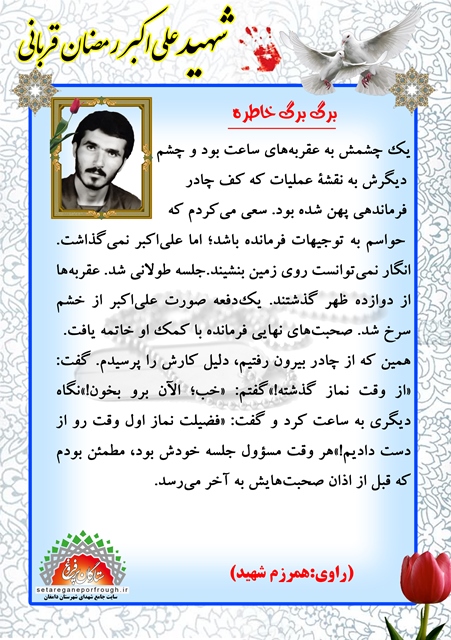 شهید علی اکبر رمضان قربانی
برگ برگ خاطره
یک چشمش به عقربه‌های ساعت بود و چشم
دیگرش به نقشهٔ عملیات که کف چادر
فرماندهی پهن شده بود. سعی می‌کردم که
حواسم به توجیهات فرمانده باشد؛ اما علی‌اکبر نمی‌گذاشت.
انگار نمی‌توانست روی زمین بنشیند.جلسه طولانی شد. عقربه‌ها
از دوازده ظهر گذشتند. یک‌دفعه صورت علی‌اکبر از خشم
سرخ شد. صحبت‌های نهایی فرمانده با کمک او خاتمه یافت.
همین که از چادر بیرون رفتیم، دلیل کارش را پرسیدم. گفت:
«از وقت نماز گذشته!»گفتم: «خب؛ الآن برو بخون!»نگاه
دیگری به ساعت کرد و گفت: «فضیلت نماز اول وقت رو از
دست دادیم!»هر وقت مسؤول جلسه خودش بود، مطمئن بودم
که قبل از اذان صحبت‌هایش به آخر می‌رسد.
(راوی:همرزم شهید)
ستارگان پرفروغ
setareganeporfrough.ir
سایت جامع شهدای شهرستان دامغان